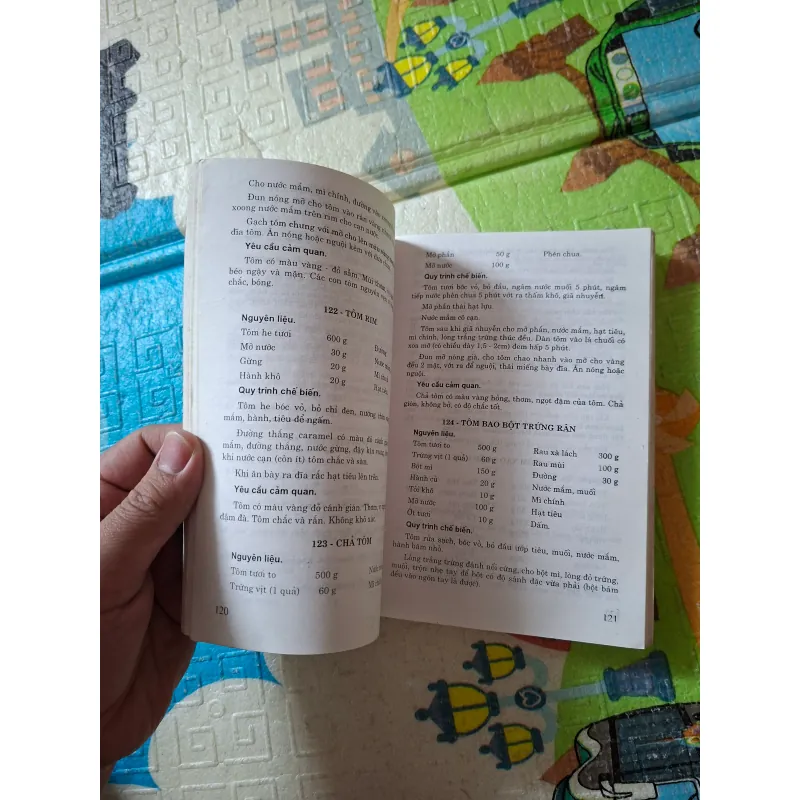 Cho nước mắm, mì chính, đường vừa
Đun nóng mỡ cho tôm vào rán vàng,
xoong nước mắm trên rim cho cạn nước.
Gạch tôm chưng với mỡ cho lên màu
đĩa tôm. Ăn nóng hoặc nguội kèm với dưa
Yêu cầu cảm quan.
Tôm có màu vàng - đỏ sẫm. Mùi thơm,
béo ngậy và mặn. Các con tôm nguyên vẹn,
chắc, bóng.
122 - TÔM RIM
Nguyên liệu.
Tôm he tươi 600 g Đường
Mỡ nước 30 g Nước
Gừng 20 g Mì
Hành khô 20 g Hạt tiêu
Quy trình chế biến.
Tôm he bóc vỏ, bỏ chỉ đen, nướng
mắm, hành, tiêu để ngấm.
Đường thắng caramel có màu đỏ cánh
mắm, đường thắng, nước gừng, đậy kín
khi nước cạn (còn ít) tôm chắc và săn.
Khi ăn bày ra đĩa rắc hạt tiêu lên trên.
Yêu cầu cảm quan.
Tôm có màu vàng đỏ cánh gián. Thơm,
đậm đà. Tôm chắc và rắn. Không khô xác.
123 - CHẢ TÔM
Nguyên liệu.
Tôm tươi to 500 g
Trứng vịt (1 quả) 60 g
120
Mỡ phần 50 g Phèn chua.
Mỡ nước 100 g
Quy trình chế biến.
Tôm tươi bóc vỏ, bỏ đầu, ngâm nước muối 5 phút, ngâm
tiếp nước phèn chua 5 phút vớt ra thấm khô, giã nhuyễn.
Mỡ phần thái hạt lựu.
Nước mắm cô cạn.
Tôm sau khi giã nhuyễn cho mỡ phần, nước mắm, hạt tiêu,
mì chính, lòng trắng trứng thúc đều. Dàn tôm vào lá chuối có
xoa mỡ (có chiều dày 1,5 - 2cm) đem hấp 5 phút.
Đun mỡ nóng già, cho tôm chao nhanh vào mỡ cho vàng
đều 2 mặt, vớt ra để nguội, thái miếng bày đĩa. Ăn nóng hoặc
nguội.
Yêu cầu cảm quan.
Chả tôm có màu vàng hồng, thơm, ngọt đậm của tôm. Chả
giòn, không bở, có độ chắc tốt.
124 - TÔM BAO BỘT TRỨNG RÁN
Nguyên liệu.
Tôm tươi to 500 g Rau xà lách 300 g
Trứng vịt (1 quả) 60 g Rau mùi 100 g
Bột mì 150 g Đường 30 g
Hành củ 20 g Nước mắm, muối
Tỏi khô 10 g Mì chính
Mỡ nước 100 g Hạt tiêu
Ớt tươi 10 g Dấm.
Quy trình chế biến.
Tôm rửa sạch, bóc vỏ, bỏ đầu ướp tiêu, muối, nước mắm,
hành băm nhỏ.
Lòng trắng trứng đánh nổi cứng, cho bột mì, lòng đỏ trứng,
muối, trộn nhẹ tay để bột có độ sánh đặc vừa phải (bột bám
đều vào ngón tay là được).
121